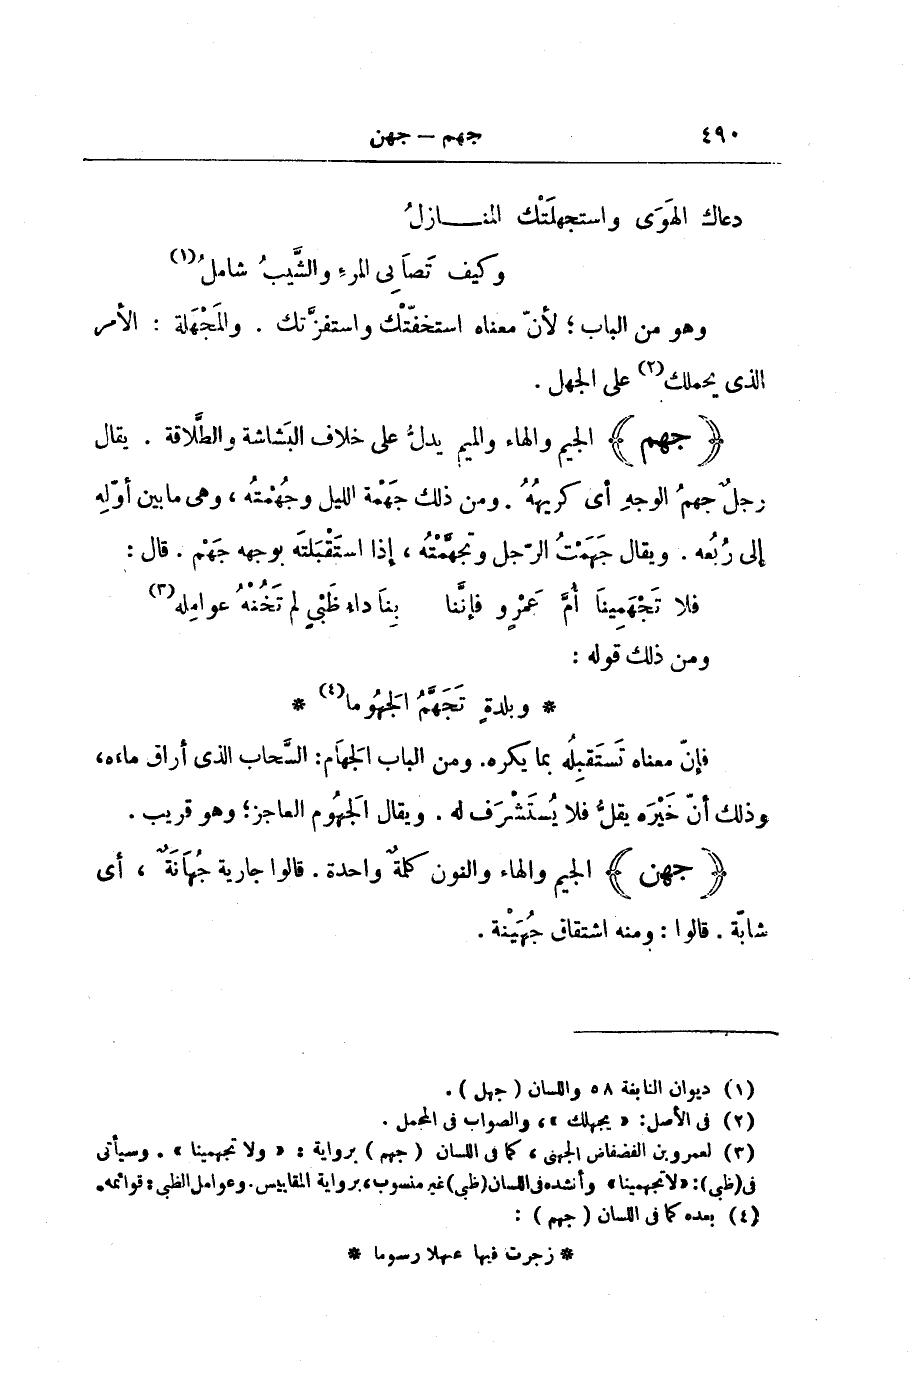 ٤٩٠ جهم – جهن
دعاك الهَوَى واستجهلَتْك المنـــازلُ
وكيف تَصاَبِى المرءِ والشَّيبُ شاملُ(١)
وهو من الباب؛ لأنّ معناه استخفّتْك واستفزَّتك . والمَجْهَلة : الأمر
الذى يحملك(٢) على الجهل .
﴿ جهم ﴾ الجيم والهاء والميم يدلُّ على خلاف البَشاشة والطَّلاقة . يقال
رجلٌ جهمُ الوجهِ أى كريهُهُ . ومن ذلك جَهْمة الليل وجُهْمتُه ، وهى ما بين أوّلِه
إلى رُبُعه . ويقال جَهَمْتُ الرّجل وتجهَّمْتُه ، إذا استَقْبَلتَه بوجهه جَهْم . قال :
فلا تَجْهَمِيناَ أُمَّ عَمْرٍو فإنَّنا بِناَ داءُ ظَبْىٍ لم تَخُنْهُ عوامِله(٣)
ومن ذلك قوله :
* وبلدةٍ تَجَهَّمُ الجَهُوما(٤) *
فإنّ معناه تَستَقبِلُه بما يكره. ومن الباب الجَهاَم: السَّحاب الذى أراق ماءه،
وذلك أنّ خَيْرَه يقلُّ فلا يُستَشْرَف له . ويقال الجَهُوم العاجز؛ وهو قريب .
﴿ جهن ﴾ الجيم والهاء والنون كلمةٌ واحدة . قالوا جارية جُهَانَةٌ ، أى
شابّة . قالوا : ومنه اشتقاق جُهَيْنة .
(١) ديوان النابغة ٥٨ واللسان ( جهل ) .
(٢) فى الأصل: « يجهلك »، والصواب فى المجمل .
(٣) لعمرو بن الفضفاض الجهنى ، كما فى اللسان ( جهم ) برواية : « ولا تجهمينا » . وسيأتى
فى (ظبى): «لا تجهمينا» وأنشده فى اللسان (ظبى) غير منسوب، برواية المقاييس. وعوامل الظبى : قوائمه.
(٤) بعده كما فى اللسان ( جهم ) :
* زجرت فيها عيهلا رسوما *